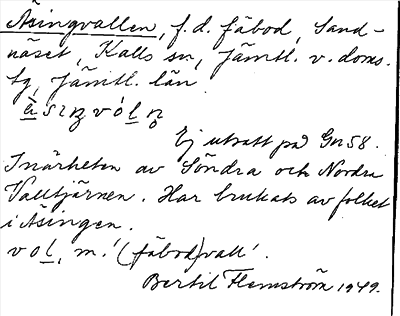 Åsingvallen, f.d. fäbod, Sand-
näset, Kalls sn, Jämtl. v. doms.
tg, Jämtl. län.
Ej utsatt på Gn 58.
I närheten av Söndra och Nordra
Valltjärnen. Har brukats av folket
i Åsingen.
vol, m. '(fäbod)vall'.
Bertil Flemström 1949.